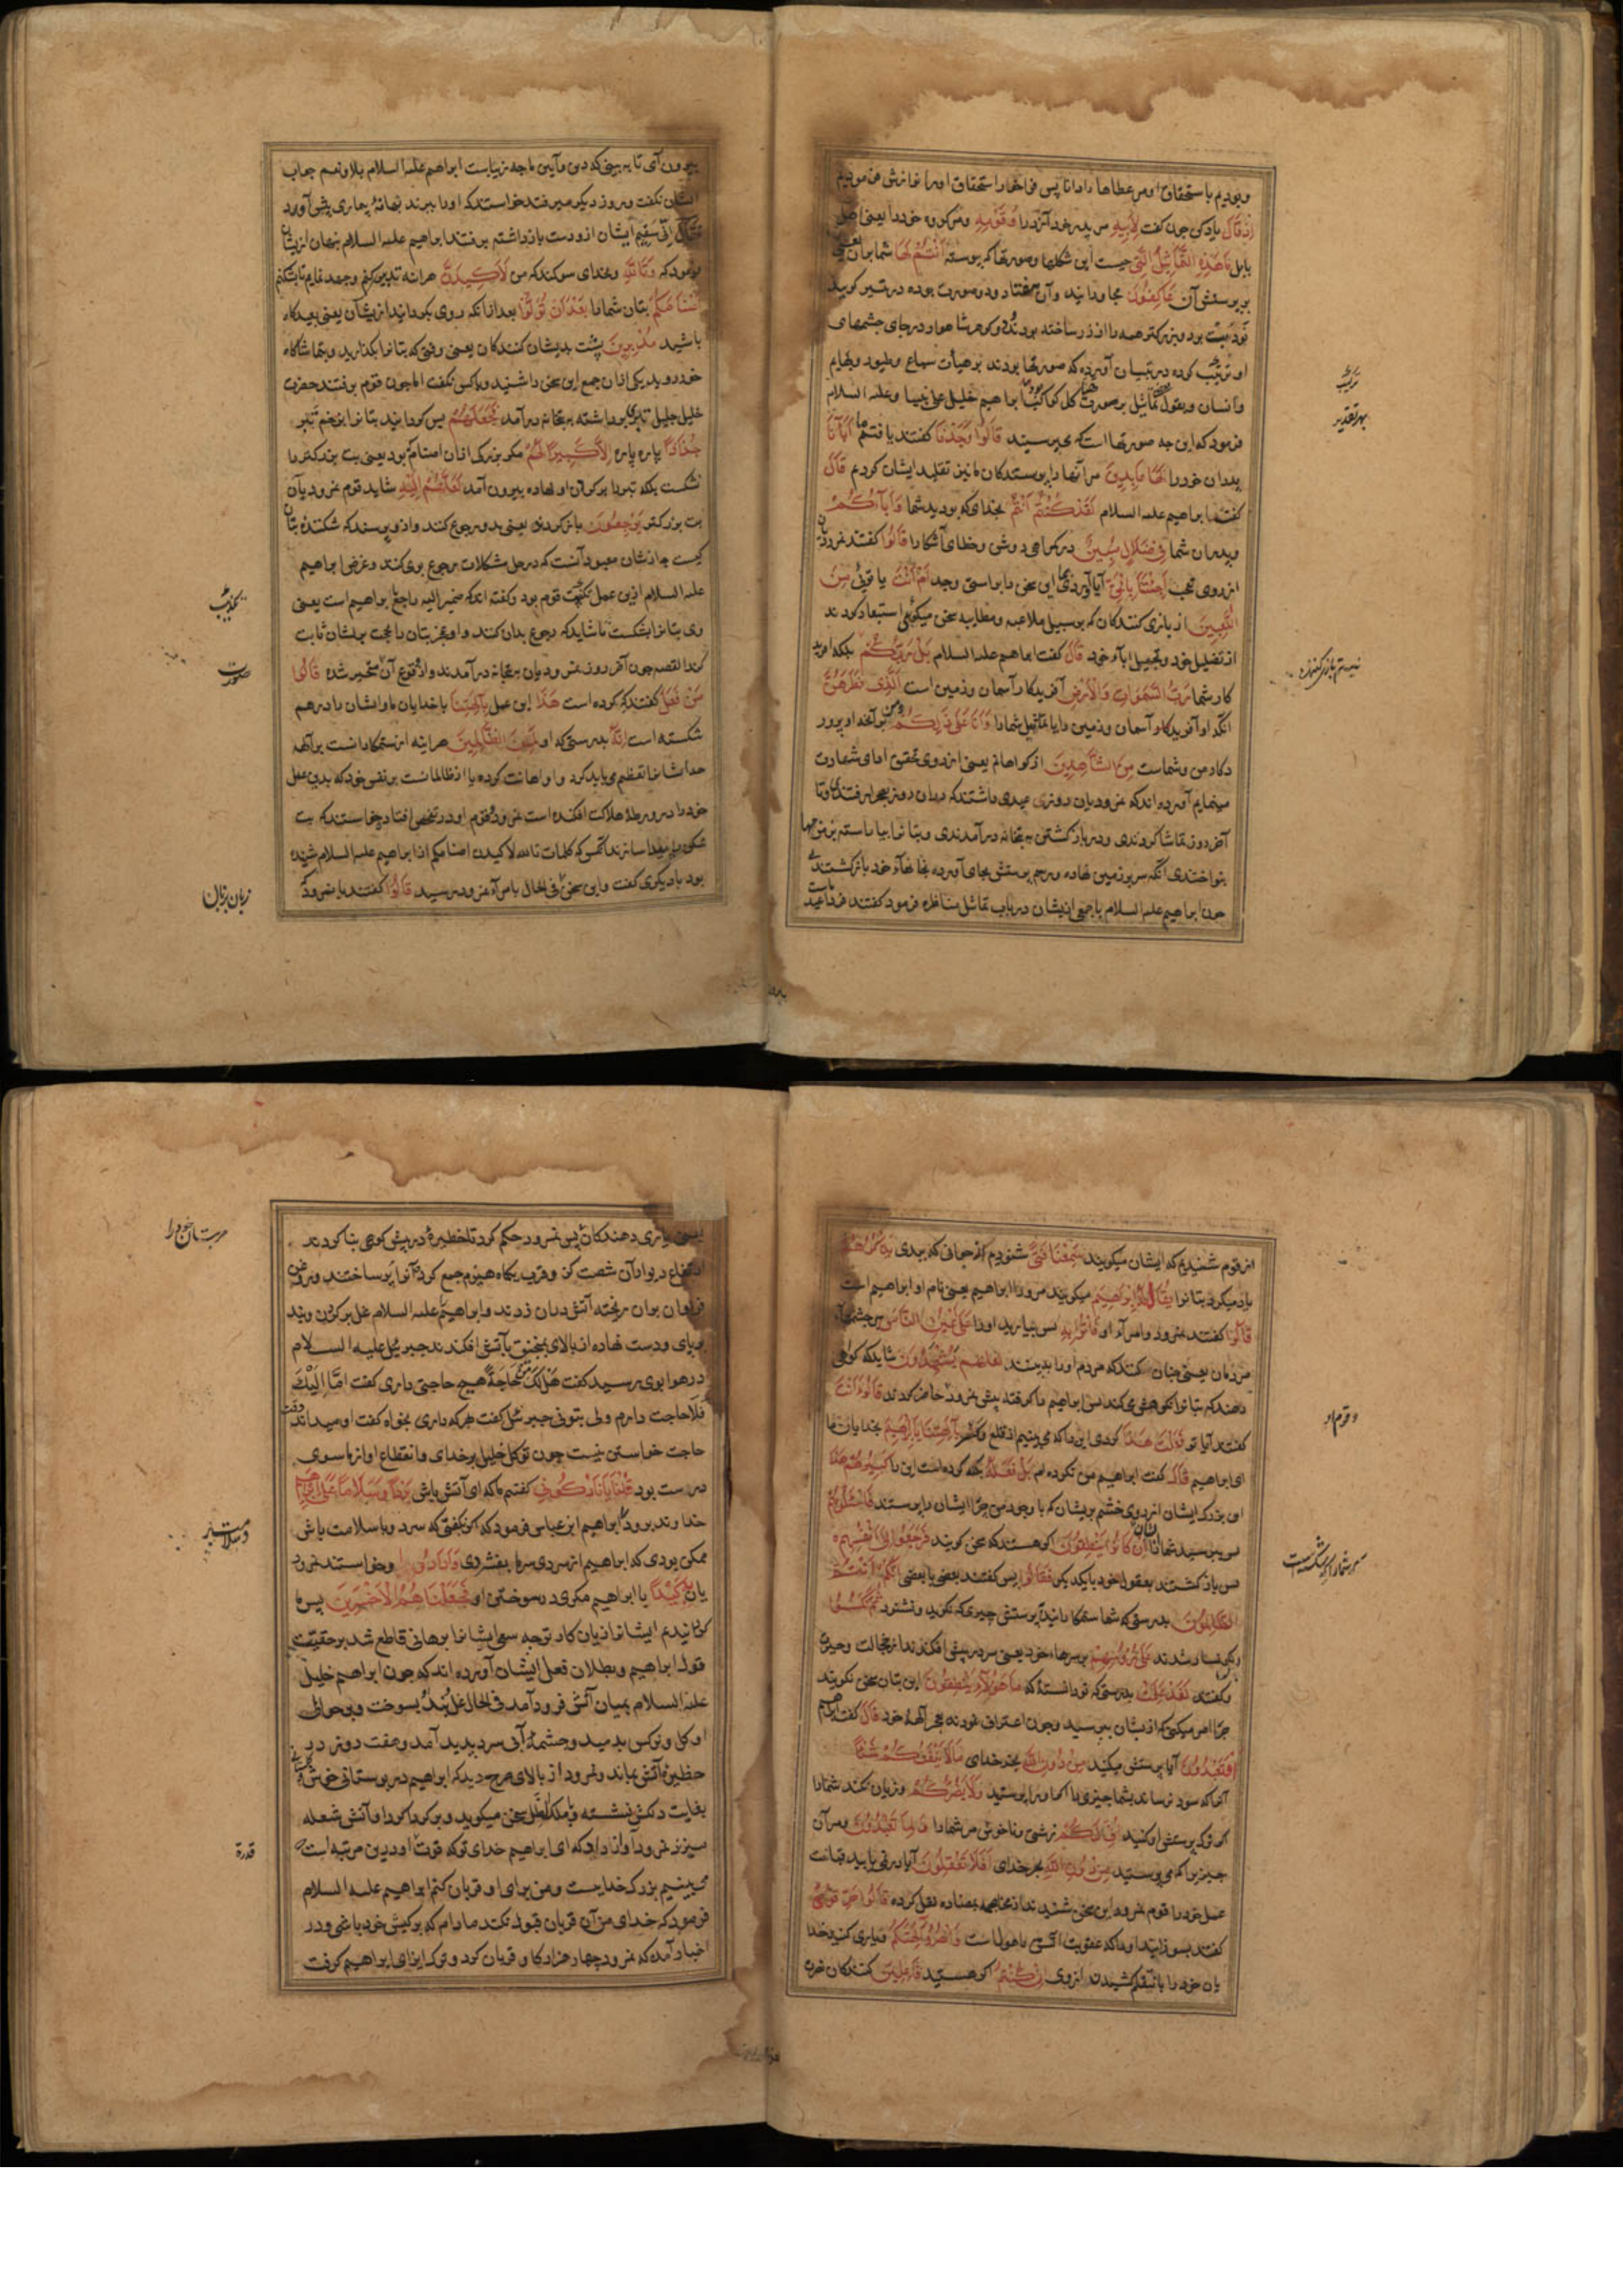 وبودیم باستحقاق او مر عطاها را دانا پس فراخور استحقاق او را نوازش فرمودیم
اِذْ قَالَ یاد کن چون گفت لِاَبِیهِ مر پدر خود آزر را وَقَوْمِهِ ومر گروه خود را یعنی اهل
بابل مَا هَذِهِ التَّمَاثِیلُ الَّتِی چیست این شکلها وصورتها که پیوسته اَنْتُمْ لَهَا شما بر آن یعنی
بر پرستش آن عَاکِفُونَ مجاورانید وآن هفتاد ودو صورت بوده در تیسیر گوید
نود بت بود وبزرکتر همه را از زر ساخته بودند ودو کوهر شاهوار در جای چشمهای
او ترکیب کرده در تبیان آورده که صورتها بودند بر هیأت سباع وطیور وبهایم
وانسان وبقول بعضی تماثیل بر صورت هیاکل کواکب بود ابراهیم خلیل علی نبینا وعلیه السلام
فرمود که این چه صورتها است که می پرسید قَالُوا وَجَدْنَا گفتند یافتیم ما اٰبَآءَنَا
پدران خود را لَهَا عَابِدِینَ مر آنها را پرستندگان ما نیز تقلید ایشان کردیم قَالَ
گفت ابراهیم علیه السلام لَقَدْ کُنْتُمْ اَنْتُمْ بخدای که بودید شما وَاٰبَآؤُکُمْ
وپدران شما فِی ضَلَالٍ مُبِینٍ در گمراهی روشن وخطای آشکارا قَالُوا گفتند نمرودیان
از روی تعجب اَجِئْتَنَا بِالْحَقِّ آیا آوردی بما این سخن را براستی وجد اَمْ اَنْتَ یا توئی مِنَ
اللَّاعِبِینَ از بازی کنندگان که بر سبیل ملاعبه ومطایبه سخن میگوئی استبعاد کردند
از تضلیل خود وتجهیل اباء خود قَالَ گفت ابراهیم علیه السلام بَلْ رَبُّکُمْ بلکه آفرید
کار شما رَبُّ السَّمٰوَاتِ وَالْاَرْضِ آفریدکار آسمان وزمین است الَّذِی فَطَرَهُنَّ
آنکه او آفریدکار آسمان وزمین را یا تماثیل شما را وَاَنَا عَلٰی ذٰلِکُمْ ومن بر آنچه او پرور
دکار من وشماست مِنَ الشَّاهِدِینَ از کواهانم یعنی از روی تحقیق ادای شهادت
مینمایم آورده اند که نمرودیان روزی عیدی داشتند که دران روز بصحرا رفتندی وتا
آخر روز تماشا کردندی ودر باز کشتن به بتخانه در آمدندی وبتانرا بیاراسته بزیورها
بنواختندی آنکه سر بر زمین نهاده ورسم پرستش بجای آورده بخانهاء خود باز کشتندی
چون ابراهیم علیه السلام با جمعی از یشان در باب تماثیل مناظره فرمود گفتند فردا عید ماست
ترکیب
بهر تقدیر
نیستم بازی کننده
بیرون آی تا به بینی که دین وآیین ما چه زیباست ابراهیم علیه السلام بلا ونعم جواب
ایشان نگفت وروز دیگر میرفتند خواستند که او را ببرند بهانهٔ بیماری پیش آورد
فَقَالَ اِنِّی سَقِیمٌ ایشان از و دست بازداشته برفتند ابراهیم علیه السلام پنهان از یشان
فرمود که وَتَاللّٰهِ وبخدای سوکند که من لَاَکِیدَنَّ هر اینه تدبیر کنم وجهد نمایم تا بشکنم
اَصْنَامَکُمْ بتان شما را بَعْدَ اَنْ تُوَلُّوا بعد از انکه روی بکردانید از یشان یعنی بعیدکاه
باشید مُدْبِرِینَ پشت بدیشان کنندگان یعنی وقتی که بتانرا بکذارید وبتماشاگاه
خود روید یکی از ان جمع این سخن را شنید وبا کسی نگفت اما چون قوم برفتند حضرت
خلیل جلیل تبری برداشته به بتخانه در آمد فَجَعَلَهُمْ پس کردانید بتانرا بزخم تبر
جُذَاذًا پاره پاره اِلَّا کَبِیرًا لَهُمْ مکر بزرک از ان اصنام که بود یعنی بت بزرکتر را
نشکست بلکه تبر را بر کردن او نهاده بیرون آمد لَعَلَّهُمْ اِلَیْهِ شاید قوم نمرود بآن
بت بزرکتر یَرْجِعُونَ باز گردند یعنی بدو رجوع کنند واز و پرسند که شکنندهٔ بتان
کیست چه از شان معبود آنست که در حل مشکلات رجوع بوی کنند وغرض ابراهیم
علیه السلام ازین عمل تبکیت قوم بود وگفته اند که ضمیر الیه راجع بابراهیم است یعنی
وی بتانرا بشکست تا شاید که رجوع بدان کنند واو عجز بتان را بحجت بریشان ثابت
کند القصه چون آخر روز نمرودیان به بتخانه در آمدند واز وقوع آن متحیر شده قَالُوا
مَنْ فَعَلَ گفتند که کرده است هٰذَا این عمل بِاٰلِهَتِنَا با خدایان ما وایشان را درهم
شکسته است اِنَّهُ بدرستی که او لَمِنَ الظَّالِمِینَ هر اینه از ستمکارانست بر آلهه
خود را در ورطهٔ هلاکت افکنده است نمرود وقوم او در تفحص افتاد وخواستند که بت
بود با دیگری گفت واین سخن فی الحال بامراء نمرود رسید قَالُوا گفتند با نمرود که
تبکیت
صورت
زبان بزبان
از قوم شنیدیم که ایشان میگویند سَمِعْنَا فَتًی شنودیم از جوانی که ببدی یَذْکُرُهُمْ
یاد میکرد بتانرا یُقَالُ لَهُ اِبْرَاهِیمُ میگویند مرورا ابراهیم یعنی نام او ابراهیم است
قَالُوا گفتند نمرود وامراء او فَأْتُوا بِهِ پس بیارید او را عَلٰی اَعْیُنِ النَّاسِ بر چشمهاء
مردمان یعنی چنان کنند که مردم او را ببینند لَعَلَّهُمْ یَشْهَدُونَ شاید که کواهی
دهند که بتانرا نکوهش میکند پس ابراهیم را گرفته پیش نمرود حاضر کردند قَالُوا ءَاَنْتَ
گفتند آیا تو فَعَلْتَ هٰذَا کردی این را که می بینیم از قلع وکسر بِاٰلِهَتِنَا یَا اِبْرَاهِیمُ بخدایان ما
ای ابراهیم قَالَ گفت ابراهیم من نکرده ام بَلْ فَعَلَهُ بلکه کرده است این را کَبِیرُهُمْ هٰذَا
این بزرک ایشان از روی خشم بریشان که با وجود من چرا ایشان را پرستند فَاسْئَلُوهُمْ
پس بپرسید شما از یشان اِنْ کَانُوا یَنْطِقُونَ اگر هستند که سخن گویند فَرَجَعُوا اِلٰی اَنْفُسِهِمْ
پس باز کشتند بعقول خود با یکدیگر فَقَالُوا پس گفتند بعضی با بعضی اِنَّکُمْ اَنْتُمُ
الظَّالِمُونَ بدرستی که شما ستمکارانید بپرستش چیزی که نگوید ونشنود ثُمَّ نُکِسُوا
پس نگونسار شدند عَلٰی رُءُوسِهِمْ بر سرهاء خود یعنی سر در پیش افکندند از خجالت وحیرت
وگفتند لَقَدْ عَلِمْتَ بدرستی که تو دانستهٔ که مَا هٰؤُلَآءِ یَنْطِقُونَ این بتان سخن نگویند
چرا امر میکنی که از یشان بپرسید وچون اعتراف نمودند بعجز آلههٔ خود قَالَ گفت ابراهیم
اَفَتَعْبُدُونَ آیا پرستش میکنید مِنْ دُونِ اللّٰهِ بجز خدای مَا لَا یَنْفَعُکُمْ شَیْئًا
آنرا که سود نرساند بشما چیزی را اگر او را پرستید وَلَا یَضُرُّکُمْ وزیان نکند شما را
اگر ترک پرستش او کنید اُفٍّ لَکُمْ زشتی وناخوشی مر شما را وَلِمَا تَعْبُدُونَ ومر آن
چیز را که می پرستید مِنْ دُونِ اللّٰهِ بجز خدای اَفَلَا تَعْقِلُونَ آیا در نمی یابید قباحت
عمل خود را قوم نمرود این سخن شنیدند از محاجه بمعاندت نقل کرده قَالُوا حَرِّقُوهُ
گفتند بسوزانید او را که عقوبت آتش با هول است وَانْصُرُوا اٰلِهَتَکُمْ ویاری کنید خدا
یان خود را بانتقام کشیدن از وی اِنْ کُنْتُمْ اگر هستید فَاعِلِینَ کنندگان نصرت
وقوم او
یعنی یاری دهندگان پس نمرود حکم کرد تا حظیرهٔ در پیش کوهی بنا کردند
ارتفاع دیوار آن شصت گز وقرب یکماه هیزم جمع کرد آنرا پر ساختند وروغن
فراوان بران ریخته آتش دران زدند وابراهیم علیه السلام غل بر گردن وبند
بر پای ودست نهاده از بالای منجنیق بآتش افکندند جبریل علیه السلام
در هوا بوی رسید گفت هَلْ لَکَ مِنْ حَاجَةٍ هیچ حاجتی داری گفت اَمَّا اِلَیْکَ
فَلَا حاجت دارم ولی بتو نی جبرئیل گفت هر که داری بخواه گفت او میداند وقت
حاجت خواستن نیست چون توکل خلیل بر خدای وانقطاع او از ما سوی
درست بود قُلْنَا یَا نَارُ کُونِی گفتیم ما که ای آتش باش بَرْدًا وَسَلَامًا عَلٰی اِبْرَاهِیمَ
خداوند برودت بر ابراهیم ابن عباس فرمود که اگر نگفتی که سرد وبا سلامت باش
ممکن بودی که ابراهیم از سردی سرما بفشردی وَاَرَادُوا وخواستند نمرود
یان بِهِ کَیْدًا با ابراهیم مکری در سوختن او فَجَعَلْنَاهُمُ الْاَخْسَرِینَ پس ما
کردانیدیم ایشانرا زیان کارتر چه سعی ایشانرا برهانی قاطع شد بر حقیقت
قول ابراهیم وبطلان فعل ایشان آورده اند که چون ابراهیم خلیل
علیه السلام بمیان آتش فرود آمد فی الحال غل وبند بسوخت وبر حوالی
او گل ونرگس بدمید وچشمهٔ آبی سرد پدید آمد وهفت روز در
حظیرهٔ آتش بماند ونمرود از بالای صرح دید که ابراهیم در بوستانی خوش
بغایت دلکش نشسته وبا ملک الظل سخن میگوید وبر گرداگرد او آتش شعله
میزند نمرود آواز داد که ای ابراهیم خدای تو که قوت او درین مرتبه است
می بینم بزرک خدایست ومن برای او قربان کنم ابراهیم علیه السلام
فرمود که خدای من آن قربان قبول نکند مادام که بر کیش خود باشی ودر
اخبار آمده که نمرود چهار هزار گاو قربان کرد وترک ایذای ابراهیم گرفت
مر بتان خود را
وسلامت
قدرة